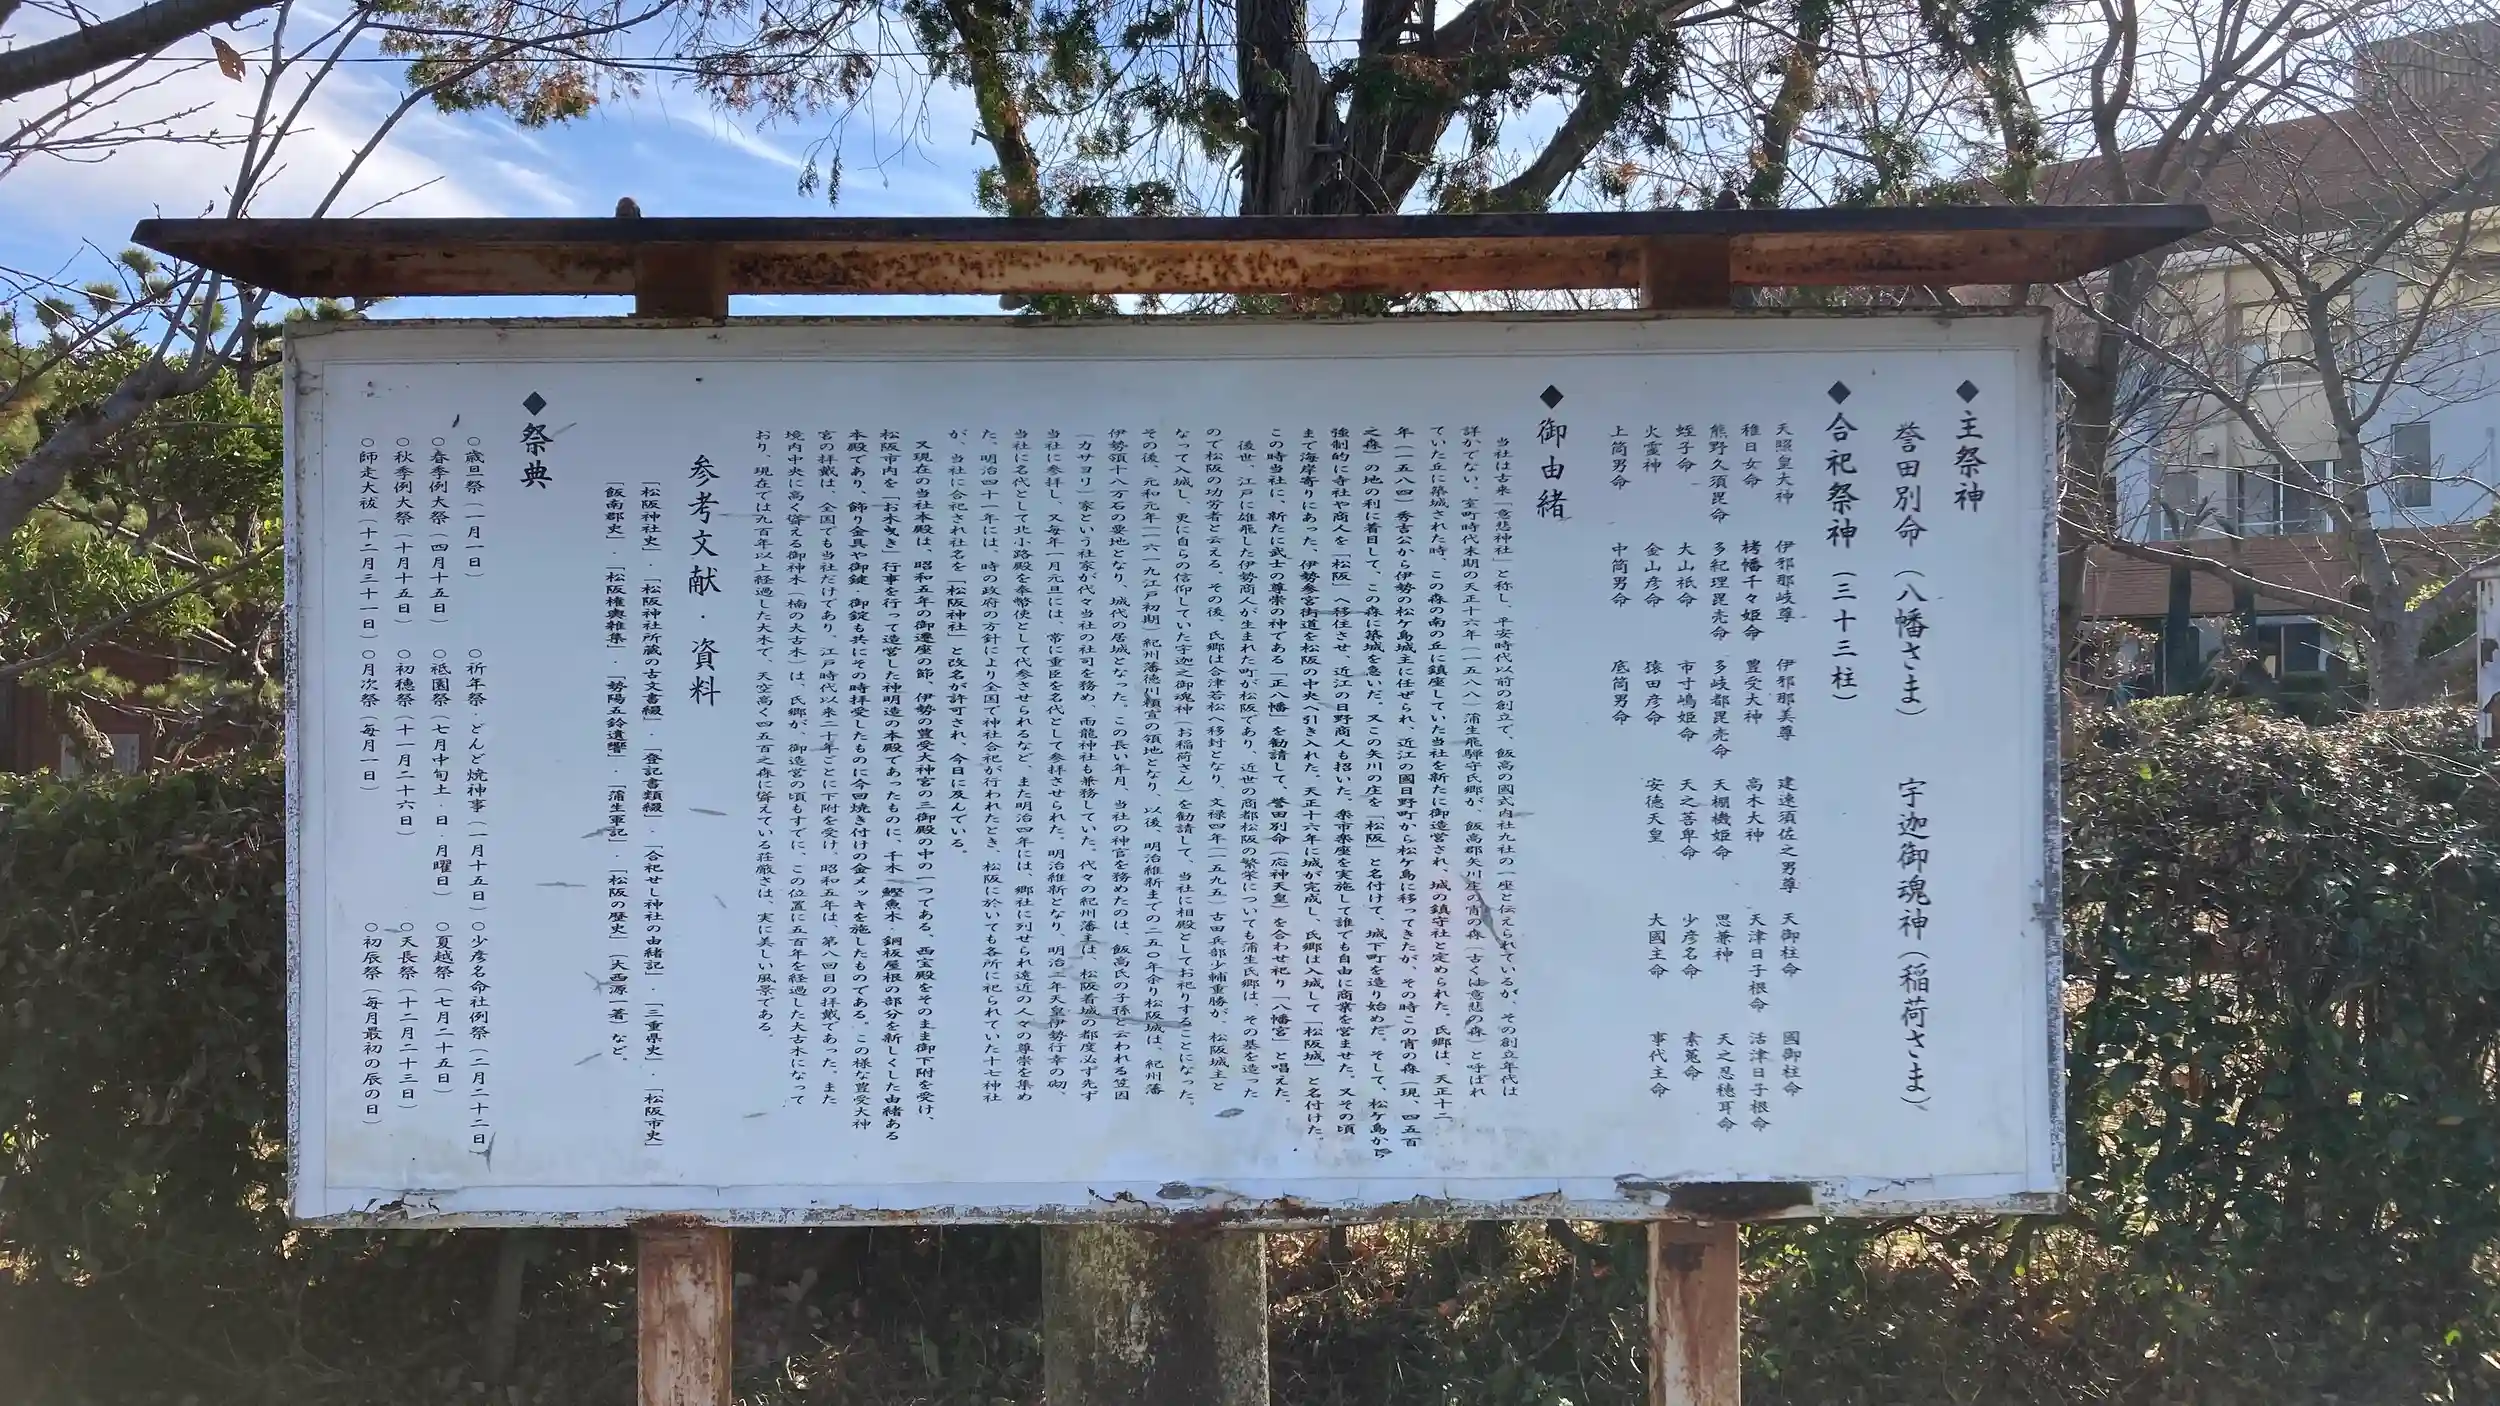 ◆主祭神
誉田別命（八幡さま）　宇迦御魂神（稲荷さま）
◆合祀祭神（三十三柱）
天照皇大神　伊邪那岐尊　伊邪那美尊　建速須佐之男尊　天御柱命　國御柱命
稚日女命　栲幡千々姫命　豊受大神　高木大神　天津日子根命　活津日子根命
熊野久須毘命　多紀理毘売命　多岐都毘売命　天棚機姫命　思兼神　天之忍穂耳命
蛭子命　大山祇命　市寸嶋姫命　天之菩卑命　少彦名命　素菟命
火霊神　金山彦命　猿田彦命　安徳天皇　大國主命　事代主命
上筒男命　中筒男命　底筒男命
◆御由緒
当社は古来「意悲神社」と称し、平安時代以前の創立で、飯高の國式内社九社の一座と伝えられているが、その創立年代は
詳かでない。室町時代末期の天正十六年（一五八八）蒲生飛騨守氏郷が、飯高郡矢川庄の宵の森（古くは意悲の森）と呼ばれ
ていた丘に築城された時、この森の南の丘に鎮座していた当社を新たに御造営され、城の鎮守社と定められた。氏郷は、天正十二
年（一五八四）秀吉公から伊勢の松ケ島城主に任ぜられ、近江の國日野町から松ケ島に移ってきたが、その時この宵の森（現、四五百
之森）の地の利に着目して、この森に築城を急いだ。又この矢川の庄を「松阪」と名付けて、城下町を造り始めた。そして、松ケ島から
強制的に寺社や商人を「松阪」へ移住させ、近江の日野商人も招いた。楽市楽座を実施して誰でも自由に商業を営ませた。又その頃
まで海岸寄りにあった、伊勢参宮街道を松阪の中央へ引き入れた。天正十六年に城が完成し、氏郷は入城して「松阪城」と名付けた。
この時当社に、新たに武士の尊崇の神である「正八幡」を勧請して、誉田別命（応神天皇）を合わせ祀り「八幡宮」と唱えた。
後世、江戸に雄飛した伊勢商人が生まれた町が松阪であり、近世の商都松阪の繁栄についても蒲生氏郷は、その基を造った
ので松阪の功労者と云える。その後、氏郷は会津若松へ移封となり、文禄四年（一五九五）古田兵部少輔重勝が、松阪城主と
なって入城し、更に自らの信仰していた宇迦之御魂神（お稲荷さん）を勧請して、当社に相殿としてお祀りすることになった。
その後、元和元年（一六一九江戸初期）紀州藩徳川頼宣の領地となり、以後、明治維新までの二五〇年余り松阪城は、紀州藩
伊勢領十八万石の要地となり、城代の居城となった。この長い年月、当社の神官を務めたのは、飯高氏の子孫と云われる笠因
（カサヨリ）家という社家が代々当社の社司を務め、雨龍神社も兼務していた。代々の紀州藩主は、松阪着城の都度必ず先ず
当社に参拝し、又毎年一月元旦には、常に重臣を名代として参拝させられた。明治維新となり、明治二年天皇伊勢行幸の砌、
当社に名代として北小路殿を奉幣使として代参させられるなど、また明治四年には、郷社に列せられ遠近の人々の尊崇を集め
た。明治四十一年には、時の政府の方針により全国で神社合祀が行われたとき、松阪に於いても各所に祀られていた十七神社
が、当社に合祀され社名を「松阪神社」と改名が許可され、今日に及んでいる。
又現在の当社本殿は、昭和五年の御遷座の節、伊勢の豊受大神宮の三御殿の中の一つである、西宝殿をそのまま御下附を受け、
松阪市内を「お木曳き」行事を行って造営した神明造の本殿であったものに、千木・鰹魚木・銅板屋根の部分を新しくした由緒ある
本殿であり、飾り金具や御鍵・御錠も共にその時拝受したものに今回焼き付けの金メッキを施したものである。この様な豊受大神
宮の拝戴は、全国でも当社だけであり、江戸時代以来二十年ごとに下附を受け、昭和五年は、第八回目の拝戴であった。また
境内中央に高く聳える御神木（楠の大古木）は、氏郷が、御造営の頃もすでに、この位置に五百年を経過した大古木になって
おり、現在では九百年以上経過した大木で、天空高く四五百之森に聳えている荘厳さは、実に美しい風景である。
参考文献・資料
「松阪神社史」・「松阪神社所蔵の古文書綴」・「登記書類綴」・「合祀せし神社の由緒記」・「三重県史」・「松阪市史」
「飯南郡史」・「松阪権輿雑集」・「勢陽五鈴遺響」・「蒲生軍記」・「松阪の歴史」（大西源一著）など。
◆祭典
○歳旦祭（一月一日）　○祈年祭・どんど焼神事（一月十五日）○少彦名命社例祭（二月二十二日）
○春季例大祭（四月十五日）　○祇園祭（七月中旬土・日・月曜日）　○夏越祭（七月二十五日）
○秋季例大祭（十月十五日）　○初穂祭（十一月二十六日）　○天長祭（十二月二十三日）
○師走大祓（十二月三十一日）○月次祭（毎月一日）　○初辰祭（毎月最初の辰の日）